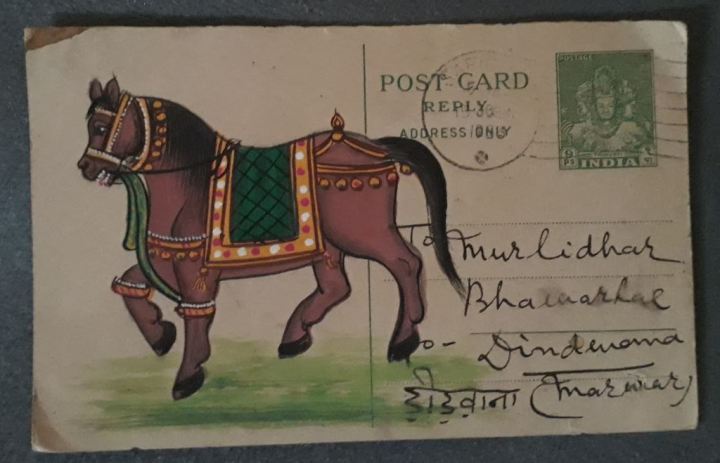 POST CARD
REPLY
ADDRESS ONLY
POSTAGE
9 PS
INDIA
To Murlidhar
Bhawarlal
Dindwana
डीडवाना (Marwar)